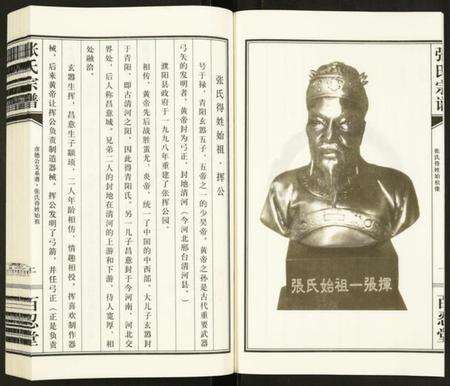 张氏宗谱
张氏得姓始祖像
百忍堂
張氏始祖一張揮
张氏得姓始祖·挥公
号于禄，青阳玄嚣五子，五帝之一的少昊帝，黄帝之孙是古代重要武器
弓矢的发明者，黄帝封为弓正，封地清河（今河北邢台清河县）。
濮阳县政府于一九九八年重建了张挥公园。
相传，黄帝先后战胜蚩尤、炎帝，统一了中国的中西部，大儿子玄嚣封
于青阳，即古清河之阳，因此得青阳氏。另一儿子昌意封于今河南、河北交
界处，后人称昌意城。兄弟二人的封地在清河的上游和下游，待人宽厚，相
处融洽。
玄嚣生挥，昌意生子颛顼，二人年龄相仿，情趣相投，挥喜欢制作器
械，后来黄帝让挥公负责制造器械。挥公发明了弓箭，并任弓正（正是负责
张氏宗谱
公支系谱·张氏得姓始祖
百忍堂